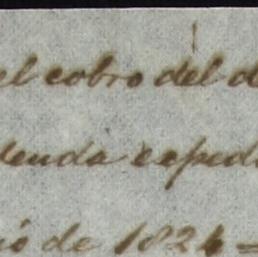 el cobro del d
deuda expedi
ió de 1824 =